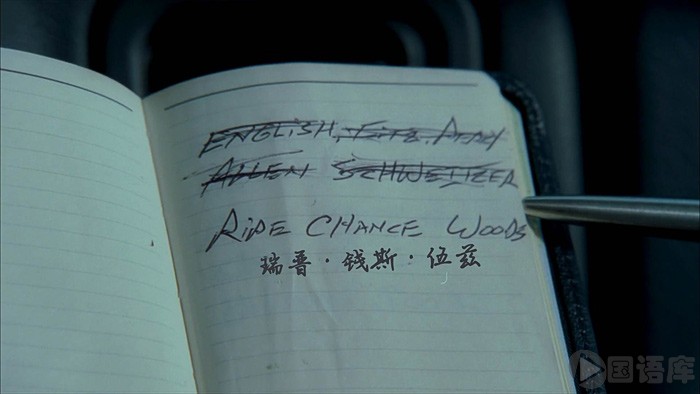 ENGLISH, FITZ, PERCY
ALLEN SCHWEITZER
RIPE CHANCE WOODS
瑞普·钱斯·伍兹
国语库